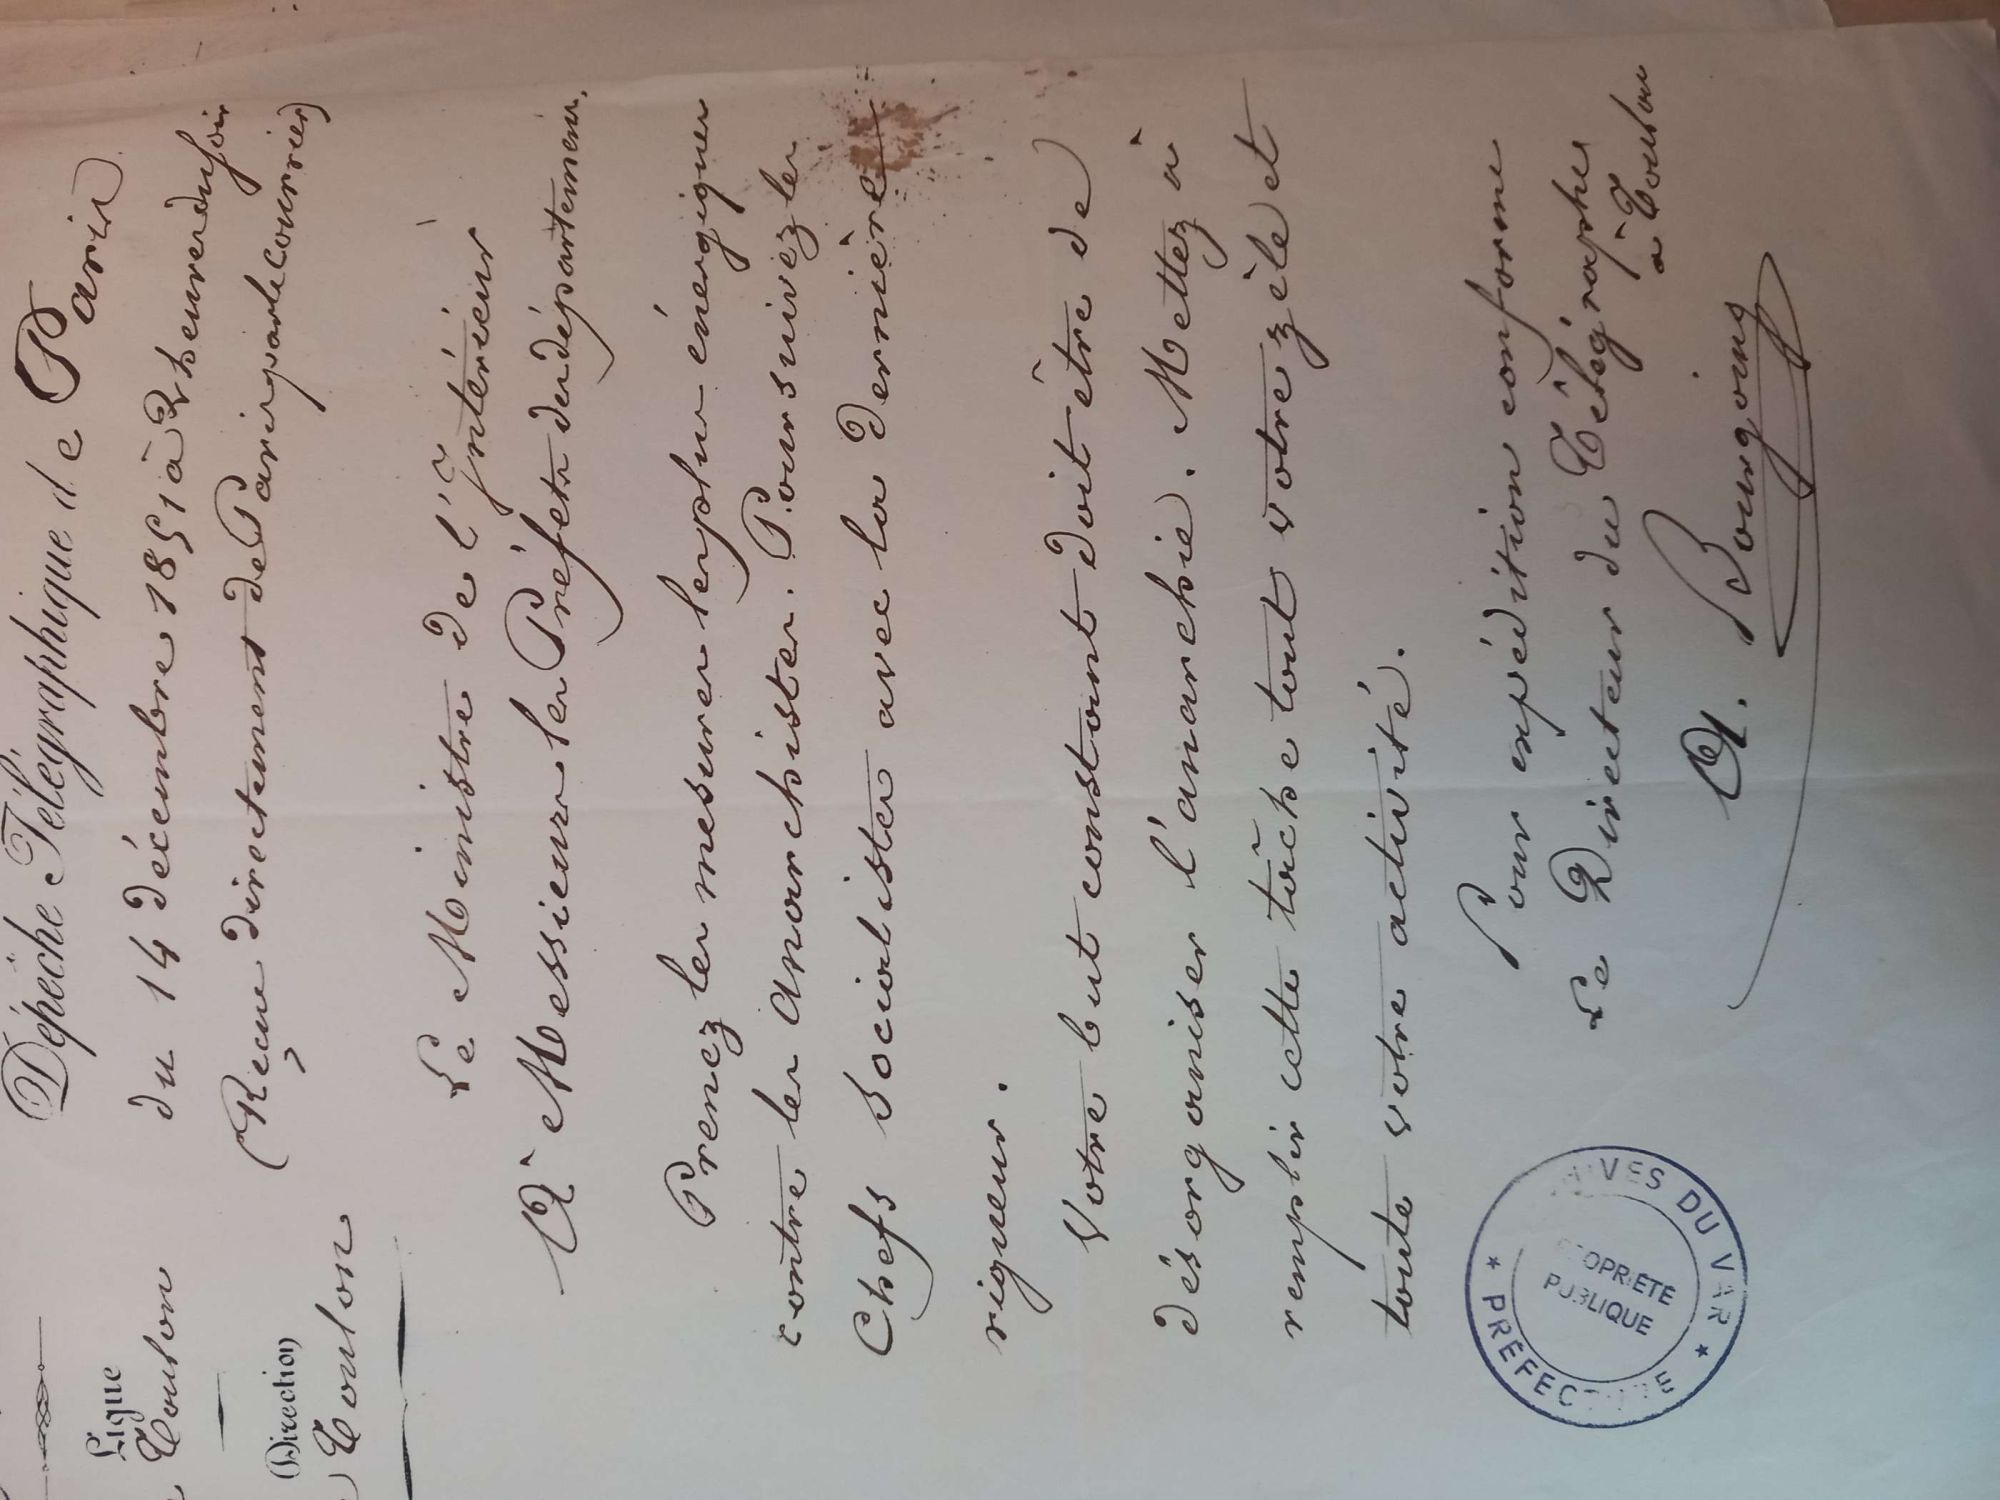 Ligne
Toulon
Direction
Toulon
Dépêche Télégraphique de Paris
du 14 décembre 1851 à 2 heures du soir
(Reçue directement de Paris par le courrier)
Le Ministre de l'Intérieur
A Messieurs les Préfets des départemens.
Prenez les mesures les plus énergiques
contre les anarchistes. Poursuivez les
Chefs socialistes avec la dernière
rigueur.
Votre but constant doit être de
désorganiser l'anarchie. Mettez à
remplir cette tâche tout votre zèle et
toute votre activité.
Pour expédition conforme
Le Directeur du Télégraphe
à Toulon
A. Bourgoing
ARCHIVES DU VAR
* PRÉFECTURE *
PROPRIÉTÉ
PUBLIQUE